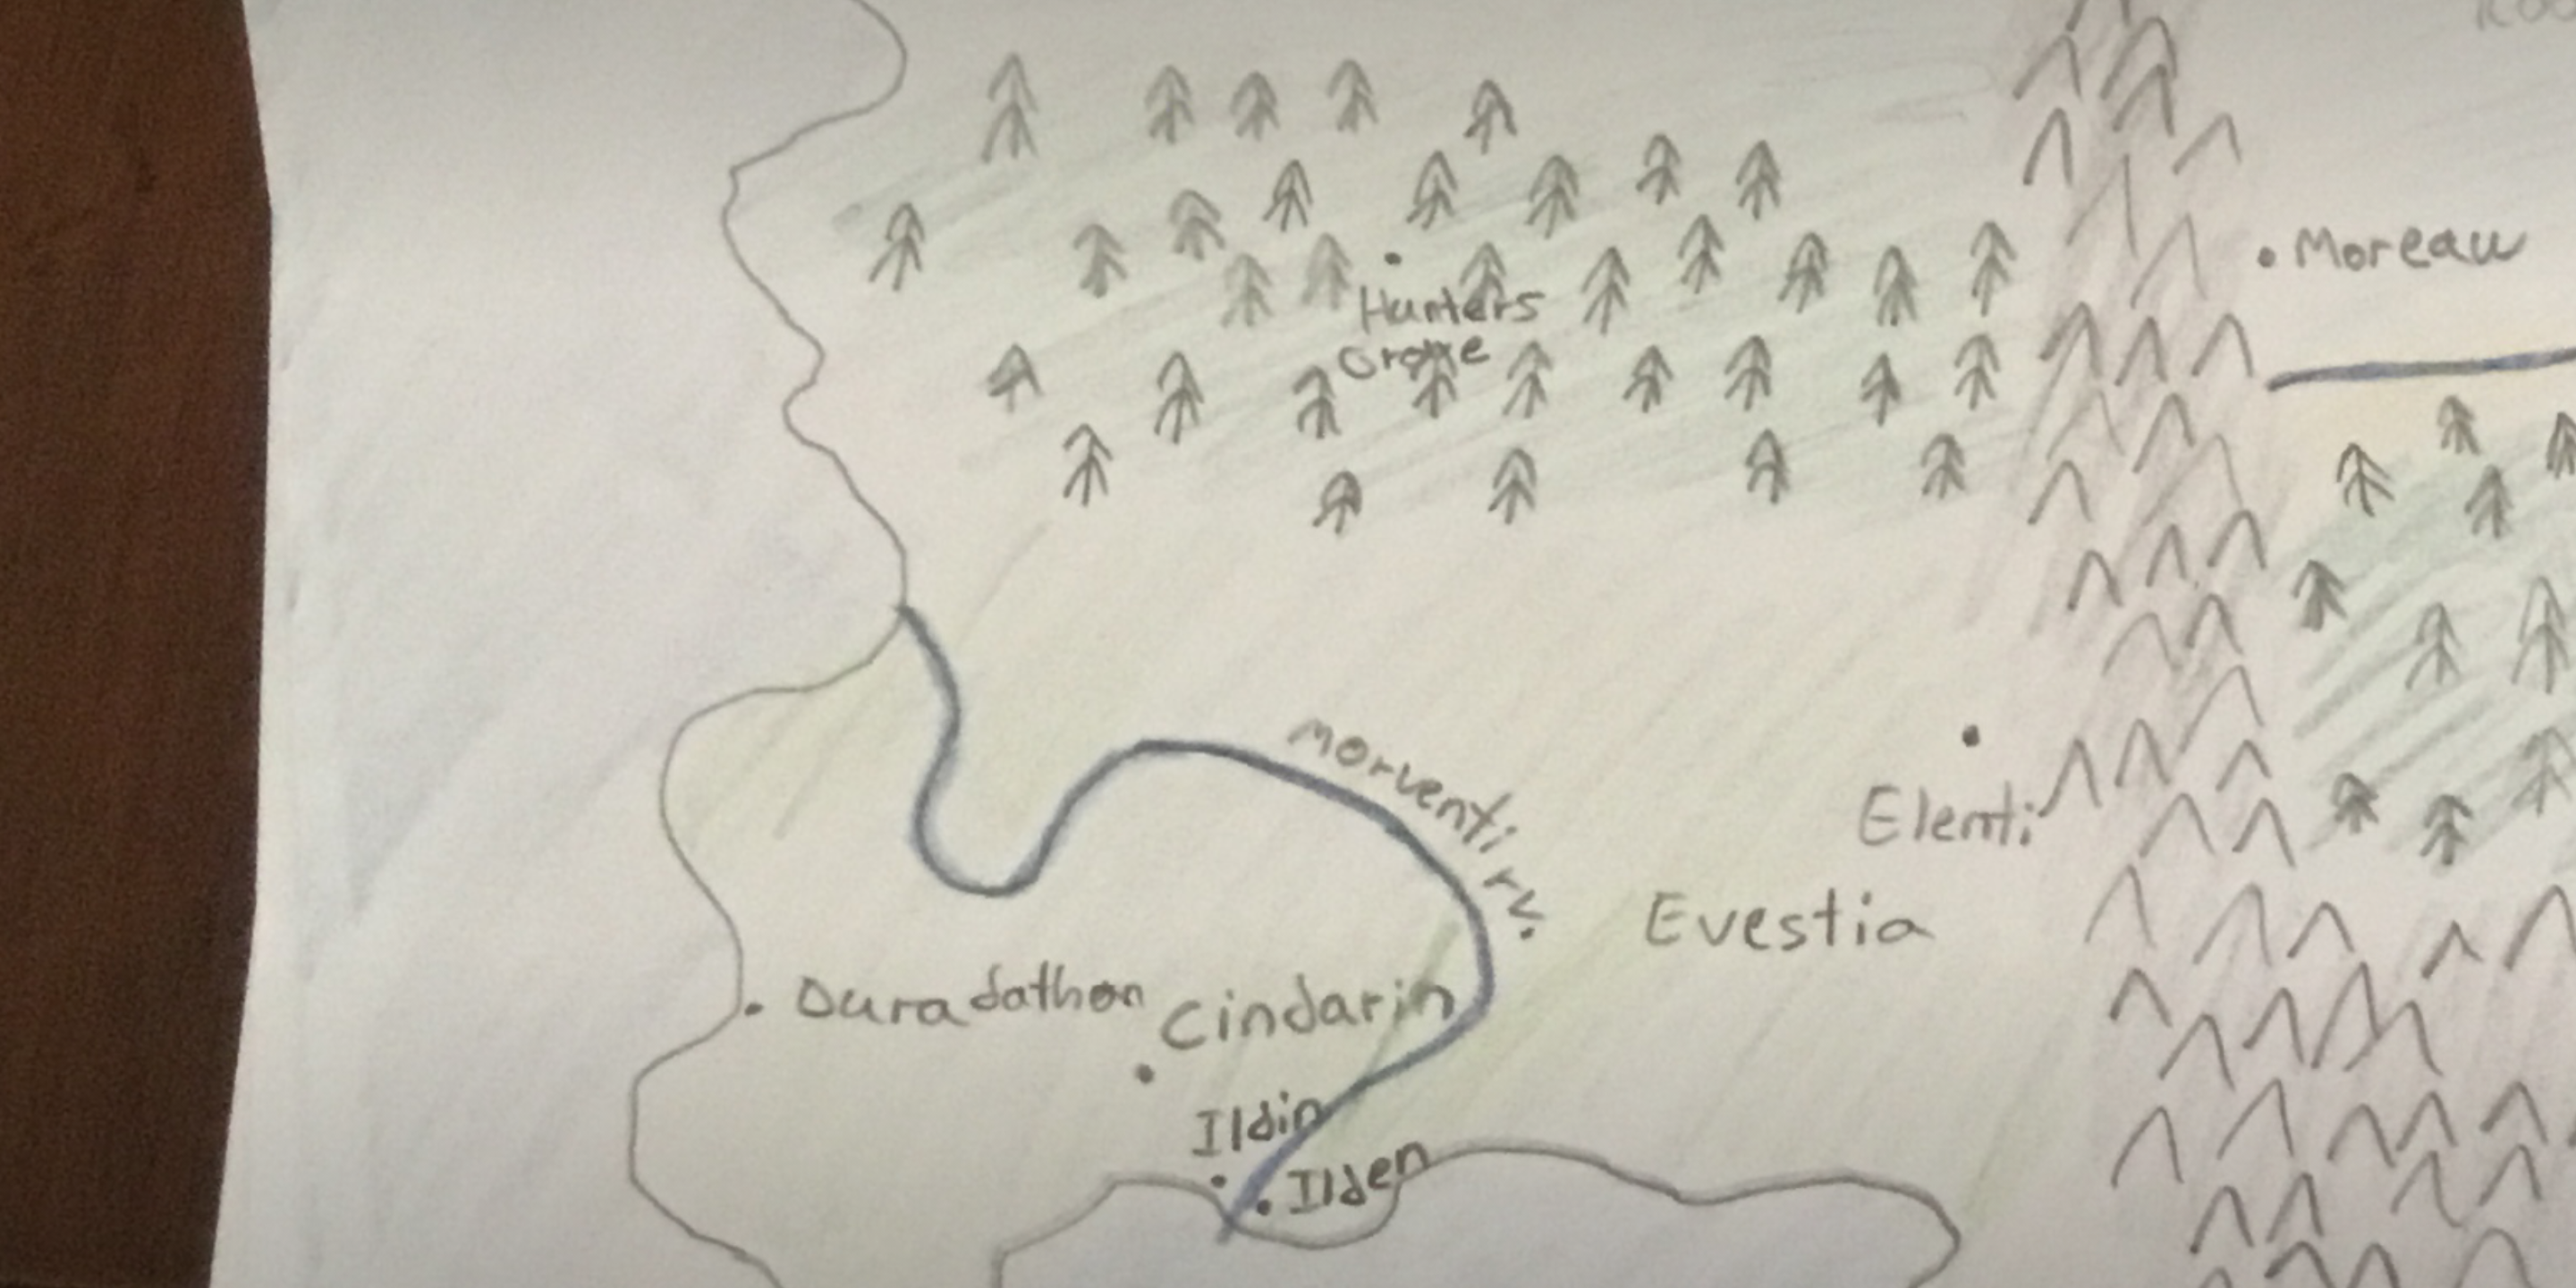 Moreau
Hunters
Grove
morventi rv.
Elenti
Evestia
Duradathon
Cindarin
Ildin
Ilden